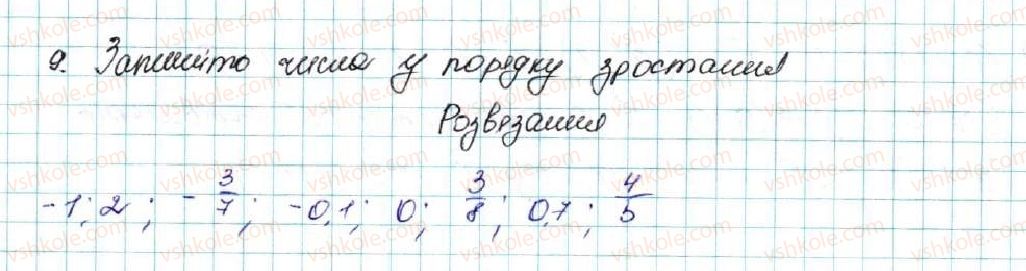 9. Запишіть числа у порядку зростання
Розвязання
-1; 2; -3/7; -0,1; 0; 3/8; 0,7; 4/5